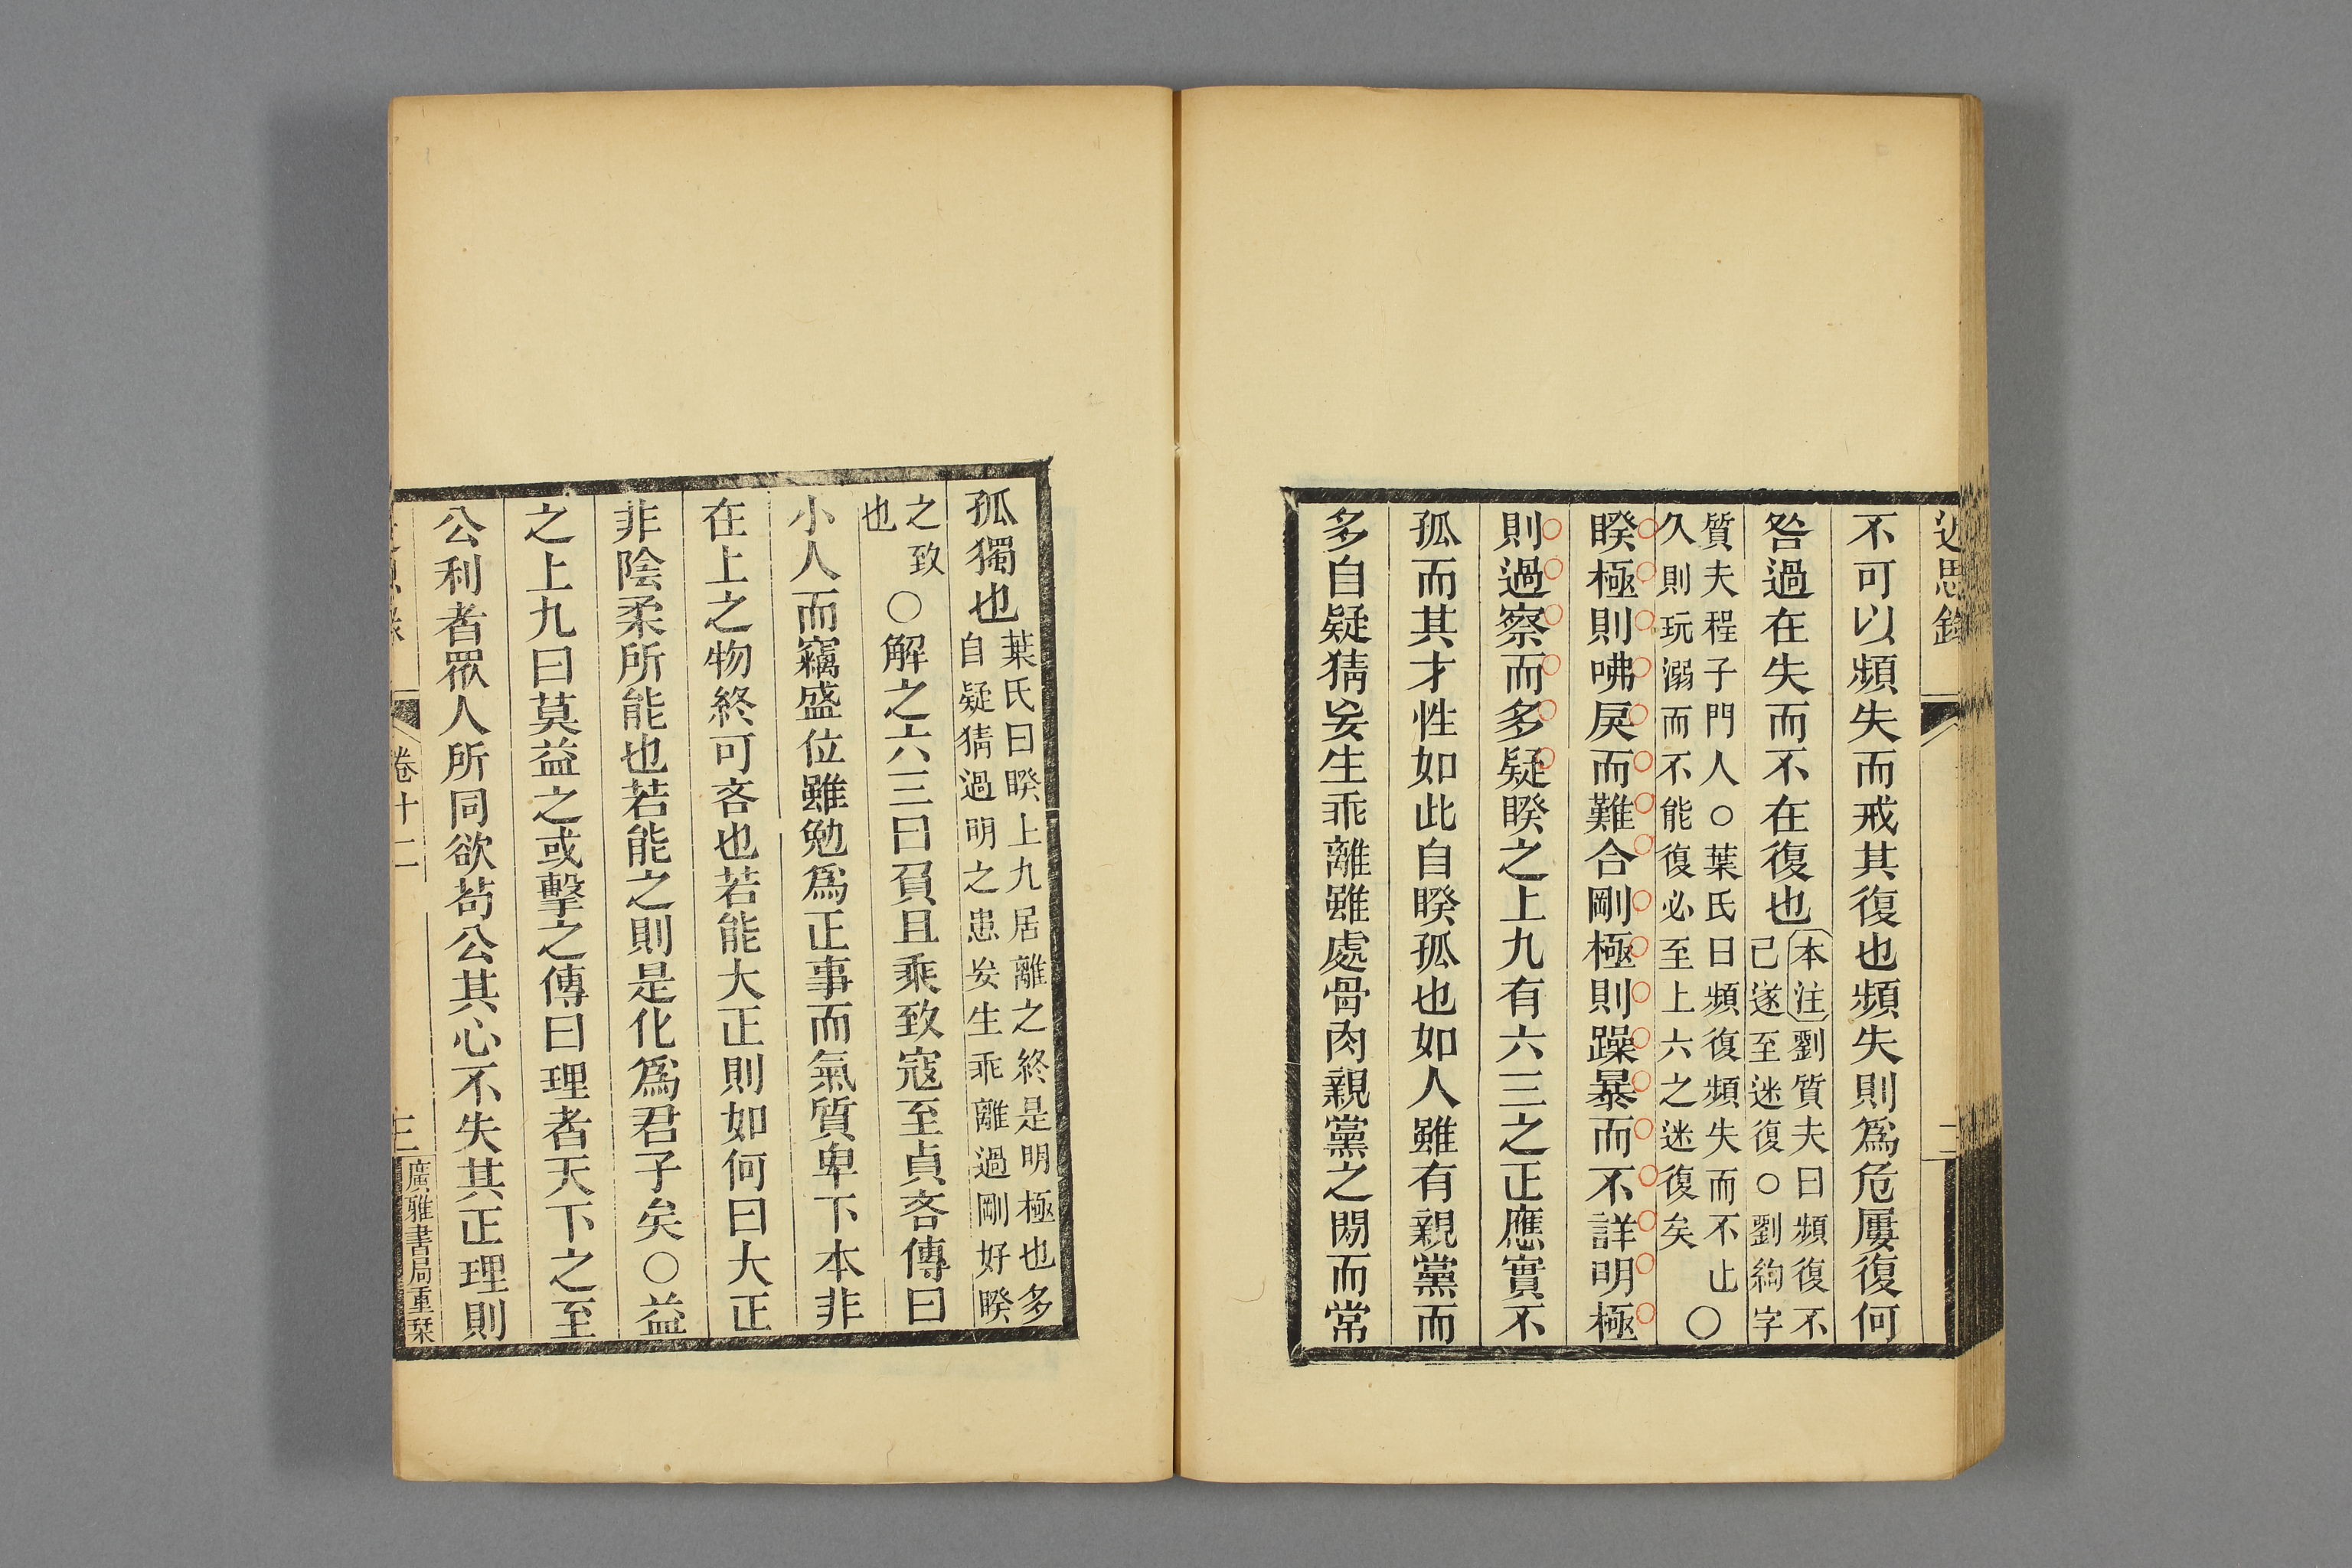 近思錄
二
不可以頻失而戒其復也頻失則爲危屢復何
咎過在失而不在復也
本注劉質夫曰頻復不
己遂至迷復○劉絢字
質夫程子門人○葉氏曰頻復頻失而不止
久則玩溺而不能復必至上六之迷復矣
○
睽極則咈戾而難合剛極則躁暴而不詳明極
則過察而多疑睽之上九有六三之正應實不
孤而其才性如此自睽孤也如人雖有親黨而
多自疑猜妄生乖離雖處骨肉親黨之閒而常
孤獨也
葉氏曰睽上九居離之終是明極也多
自疑猜過明之患妄生乖離過剛好睽
之致
也
○解之六三曰負且乘致寇至貞吝傳曰
小人而竊盛位雖勉爲正事而氣質卑下本非
在上之物終可吝也若能大正則如何曰大正
非陰柔所能也若能之則是化爲君子矣○益
之上九曰莫益之或擊之傳曰理者天下之至
公利者眾人所同欲茍公其心不失其正理則
卷十二
三
廣雅書局重栞